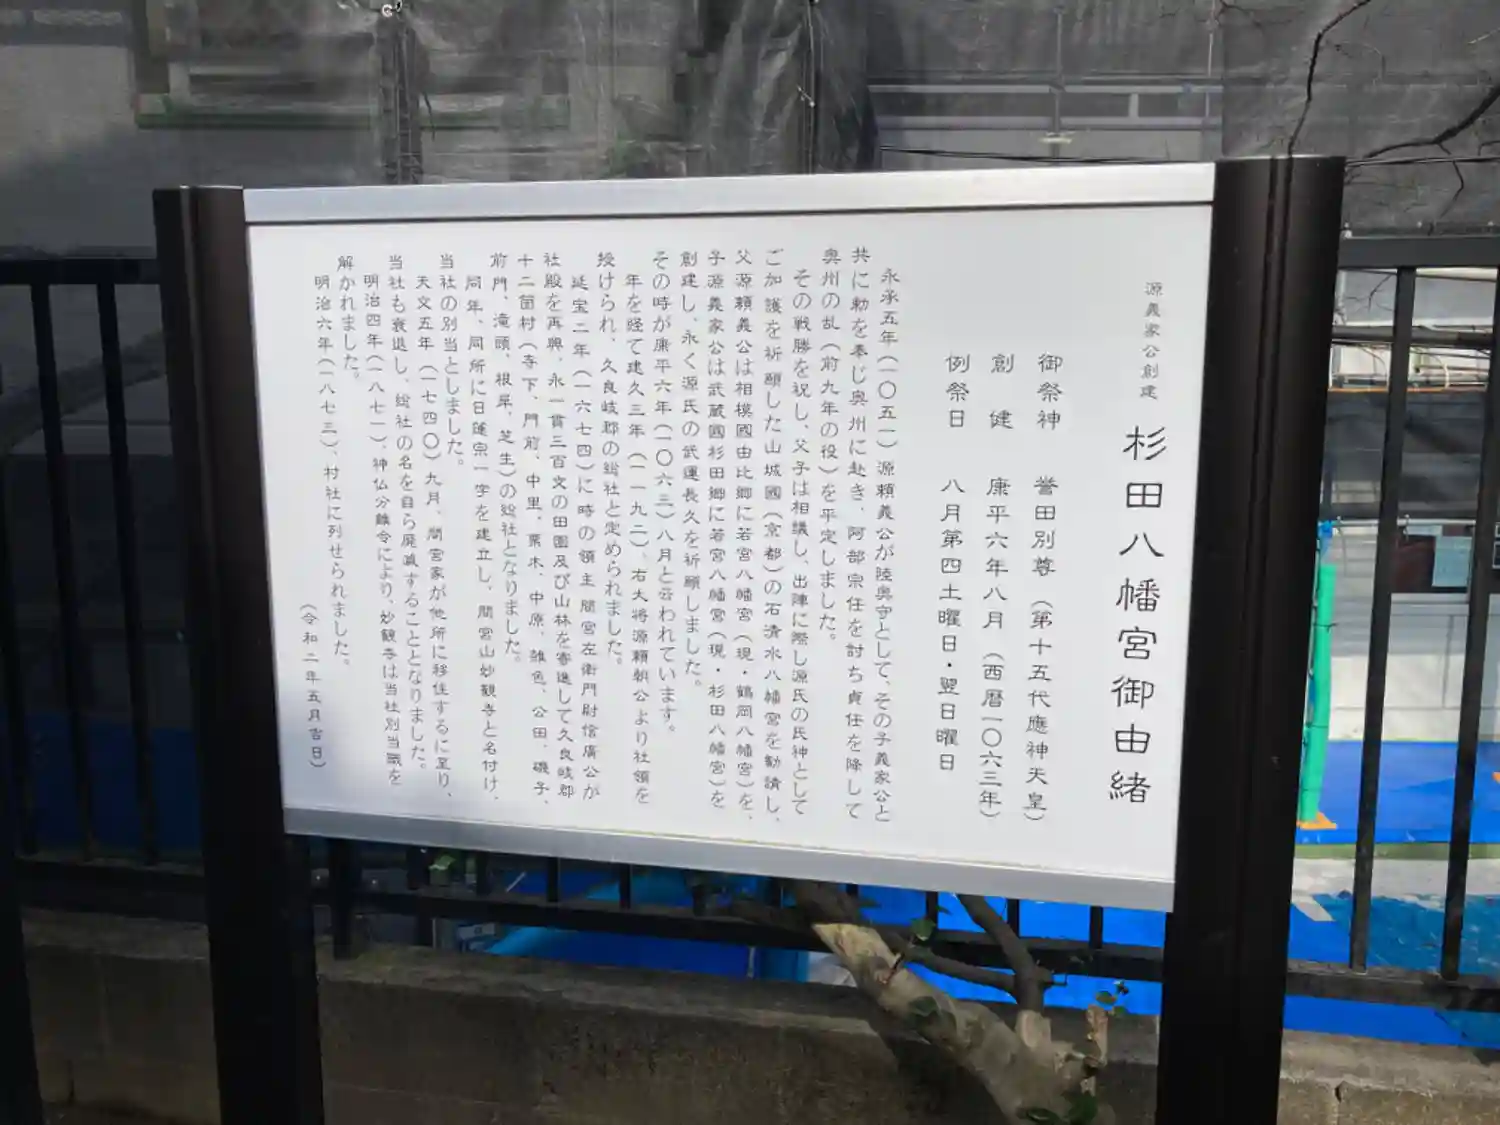 源義家公創建 杉田八幡宮御由緒
御祭神 誉田別尊(第十五代應神天皇)
創健 康平六年八月(西暦一〇六三年)
例祭日 八月第四土曜日・翌日曜日
永承五年(一〇五一)源頼義公が陸奥守として、その子義家公と
共に勅を奉じ奥州に赴き、阿部宗任を討ち貞任を降して
奥州の乱(前九年の役)を平定しました。
その戦勝を祝し、父子は相議し、出陣に際し源氏の氏神として
ご加護を祈願した山城國(京都)の石清水八幡宮を勧請し、
父源頼義公は相模國由比郷に若宮八幡宮(現・鶴岡八幡宮)を、
子源義家公は武蔵國杉田郷に若宮八幡宮(現・杉田八幡宮)を
創建し、永く源氏の武運長久を祈願しました。
その時が康平六年(一〇六三)八月と云われています。
年を経て建久三年(一一九二)、右大将源頼朝公より社領を
授けられ、久良岐郡の総社と定められました。
延宝二年(一六七四)に時の領主間宮左衛門尉信廣公が
社殿を再興、永一貫三百文の田園及び山林を寄進して久良岐郡
十二箇村(寺下、門前、中里、栗木、中原、雑色、公田、磯子、
前門、滝頭、根岸、芝生)の総社となりました。
同年、同所に日蓮宗一宇を建立し、間宮山妙観寺と名付け、
当社の別当としました。
天文五年(一七四〇)九月、間宮家が他所に移住するに至り、
当社も衰退し、総社の名を自ら廃滅することとなりました。
明治四年(一八七一)、神仏分離令により、妙観寺は当社別当職を
解かれました。
明治六年(一八七三)、村社に列せられました。
(令和二年五月吉日)